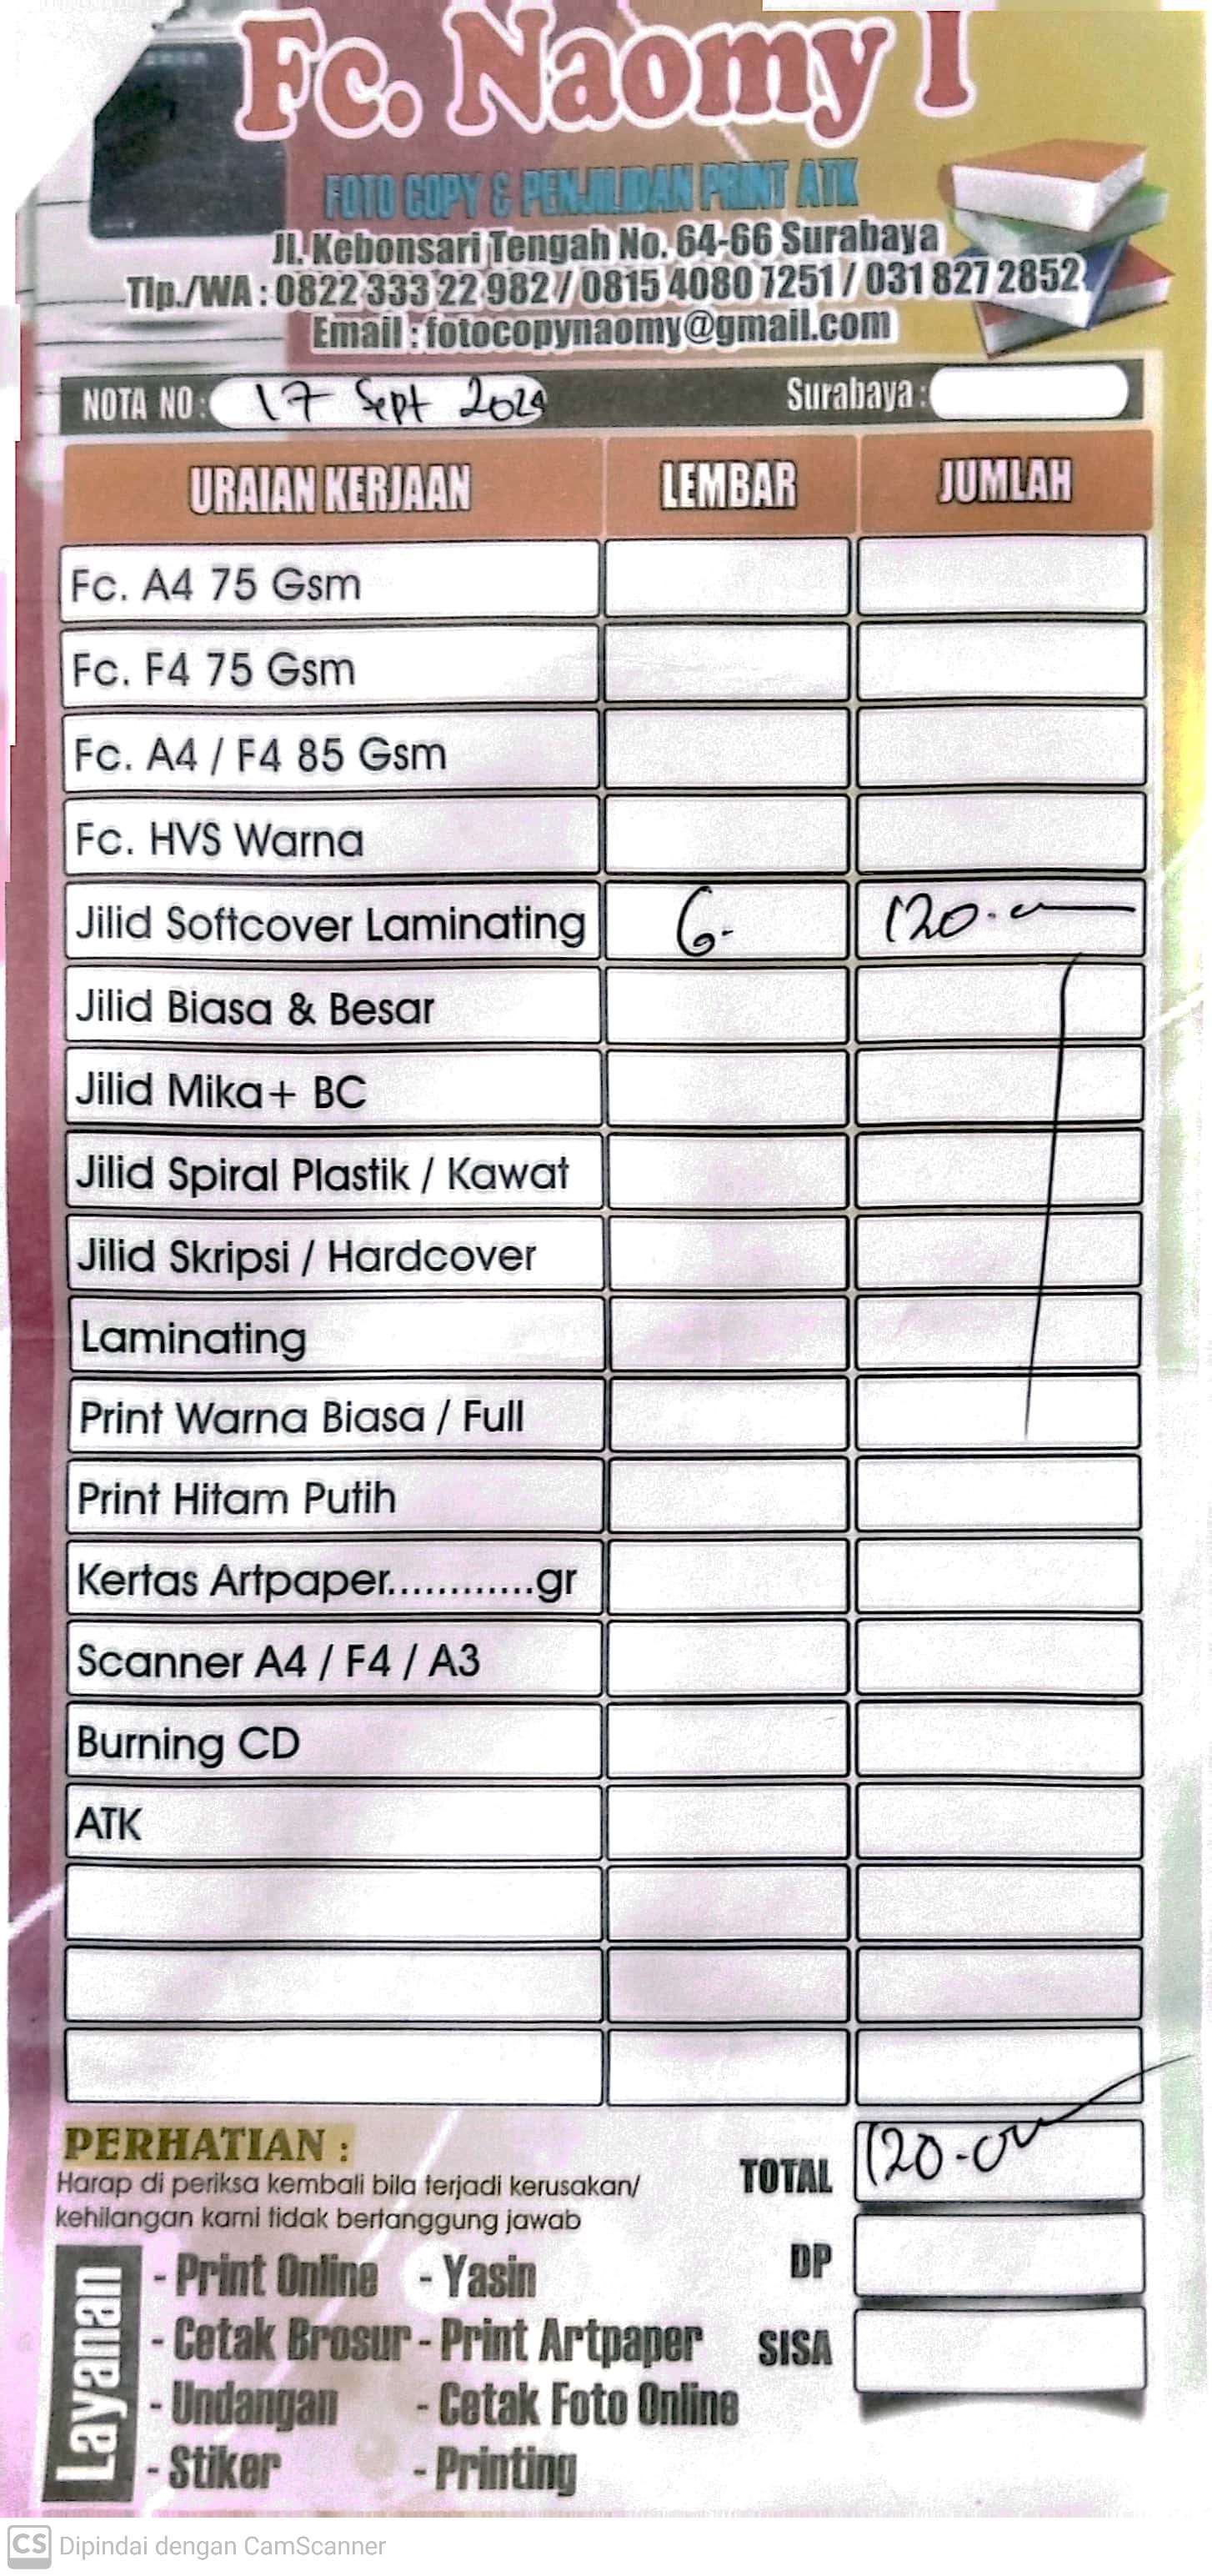 Fc. Naomy 1
FOTO COPY & PENJILIDAN PRINT ATK
Jl. Kebonsari Tengah No. 64-66 Surabaya
Tlp./WA : 0822 333 22 982 / 0815 4080 7251 / 031 827 2852
Email : fotocopynaomy@gmail.com
NOTA NO : 17 Sept 2024 Surabaya :
URAIAN KERJAAN LEMBAR JUMLAH
Fc. A4 75 Gsm
Fc. F4 75 Gsm
Fc. A4 / F4 85 Gsm
Fc. HVS Warna
Jilid Softcover Laminating 6.- 120.
Jilid Biasa & Besar
Jilid Mika+ BC
Jilid Spiral Plastik / Kawat
Jilid Skripsi / Hardcover
Laminating
Print Warna Biasa / Full
Print Hitam Putih
Kertas Artpaper............gr
Scanner A4 / F4 / A3
Burning CD
ATK
PERHATIAN :
Harap di periksa kembali bila terjadi kerusakan/
kehilangan kami tidak bertanggung jawab
TOTAL 120.
DP
SISA
Layanan
- Print Online - Yasin
- Cetak Brosur - Print Artpaper
- Undangan - Cetak Foto Online
- Stiker - Printing
CS Dipindai dengan CamScanner